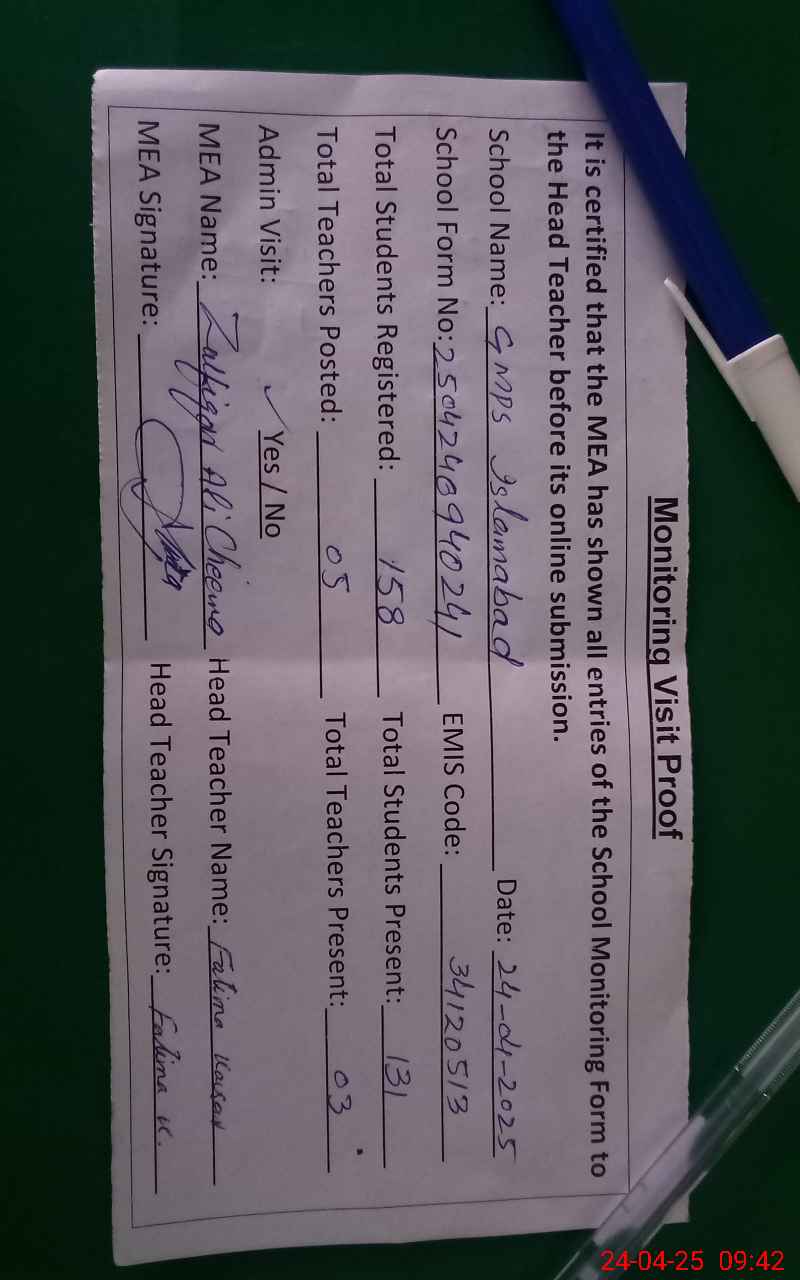 Monitoring Visit Proof
It is certified that the MEA has shown all entries of the School Monitoring Form to
the Head Teacher before its online submission.
School Name: GMPS Islamabad Date: 24-04-2025
School Form No: 25042409940241 EMIS Code: 34120513
Total Students Registered: 158 Total Students Present: 131
Total Teachers Posted: 05 Total Teachers Present: 03
Admin Visit: ✓ Yes / No
MEA Name: Zulfiqar Ali Cheema Head Teacher Name: Fatima Kousar
MEA Signature: Head Teacher Signature: Fatima K.
24-04-25 09:42